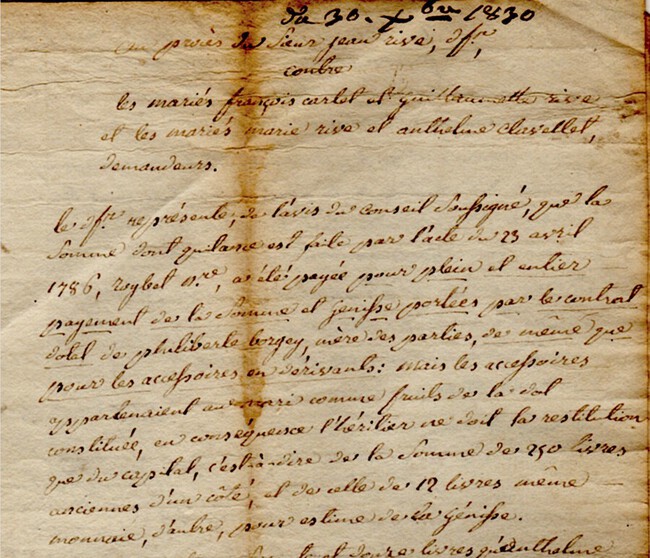 du 30. Xbre 1830
au procès du Sieur jean rive, dfr,
contre
les mariés françois carlet et guillaumette rive
et les mariés marie rive et anthelme clavellet,
demandeurs.
le dfr représente, de l'avis du conseil soussigné, que la
somme dont quitance est faite par l'acte du 23 avril
1786, roybet nre, a été payée pour plein et entier
payement de la somme et genisse portées par le contrat
dotal de philiberte borgey, mère des parties, de même que
pour les accessoires en dérivants: mais les accessoires
appartenaient au mari comme fruits de la dot
constituée, en conséquence l'héritier ne doit la restitution
que du capital, c'est à dire de la somme de 250 livres
anciennes d'un côté, et de celle de 12 livres même
monnaie, d'autre, pour estime de la génisse.
et douze livres qu'anthelme